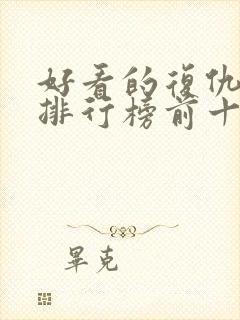 好看的復仇
排行榜前十
畢克